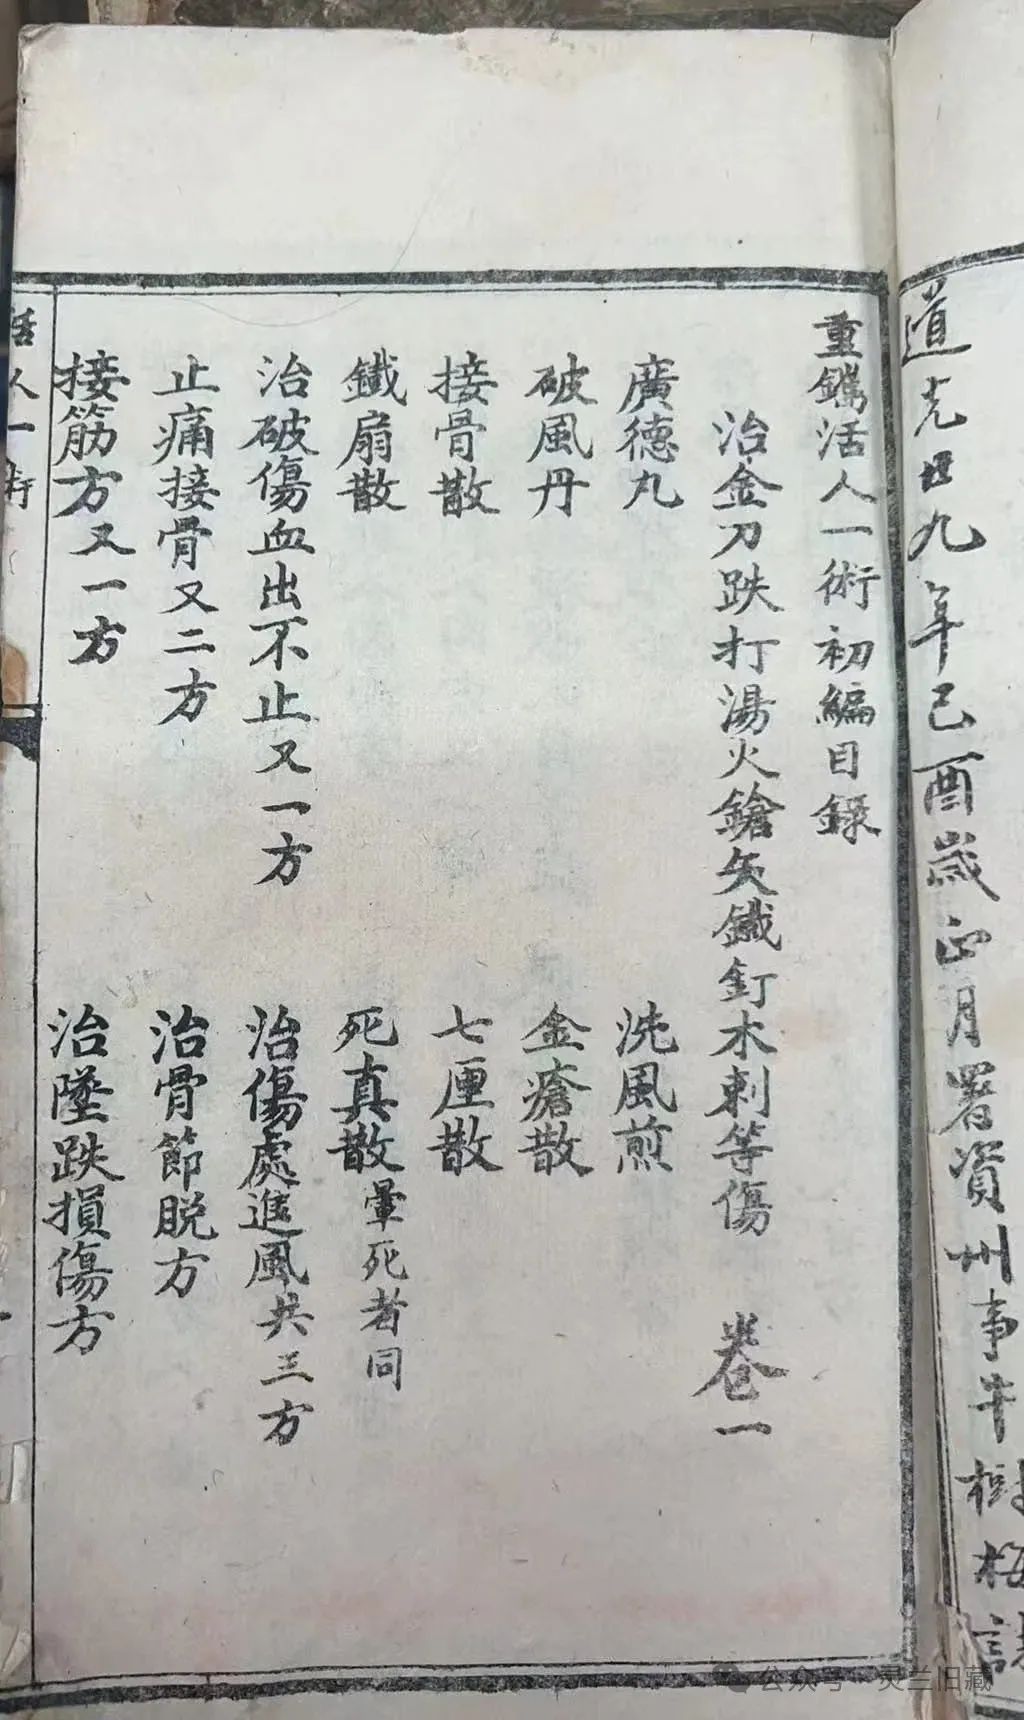 道光廿九年己酉歲正月署資州事牛樹梅
重鐫活人一術初編目錄
治金刀跌打湯火鎗矢鐵釘木刺等傷 卷一
廣德丸 洗風煎
破風丹 金瘡散
接骨散 七厘散
鐵扇散 死真散暈死者同
治破傷血出不止又一方 治傷處進風共三方
止痛接骨又二方 治骨節脫方
接筋方又一方 治墜跌損傷方
活人一術
公众号·灵兰旧藏